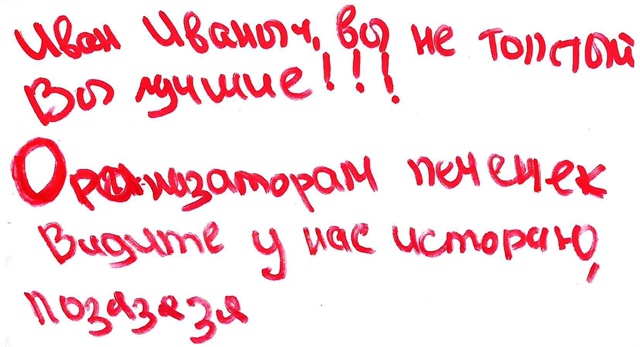 Иван Иваныч, вы не толстый
Вы лучшие!!!
Организаторам печенек
Видите у нас историю,
позязязя